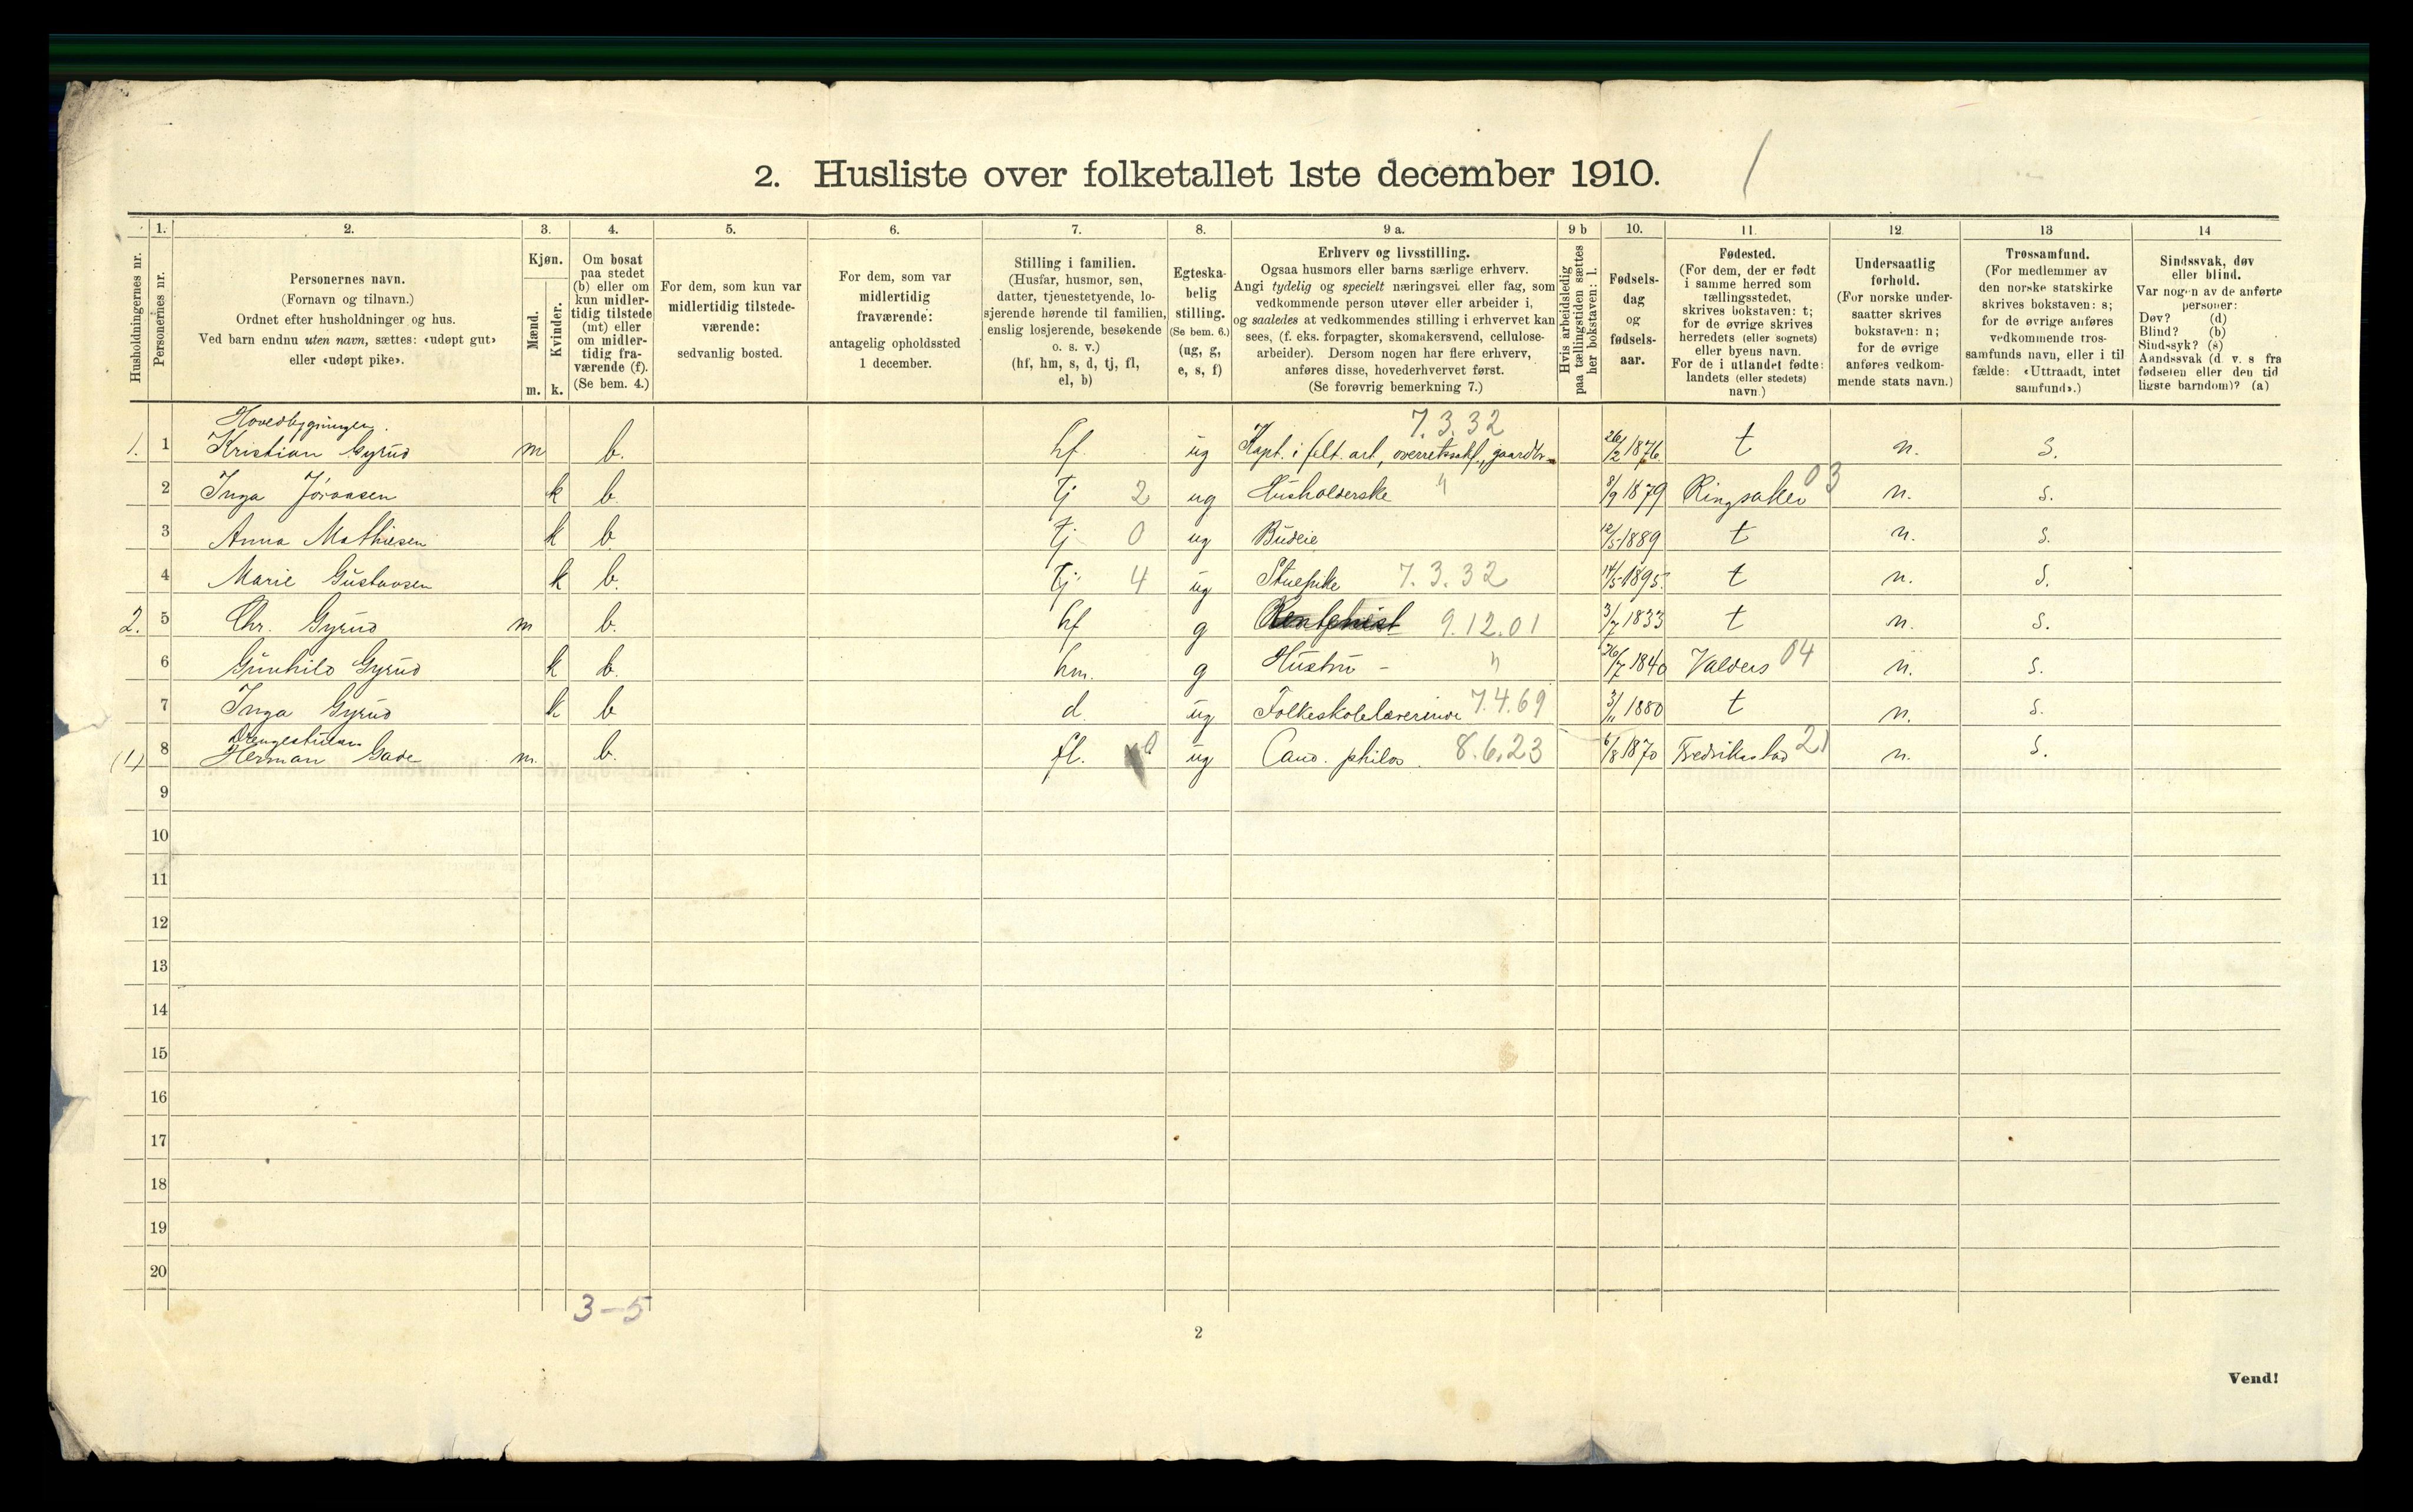 2. Husliste over folketallet 1ste december 1910. /
1. 2. 3. 4. 5. 6. 7. 8. 9 a. 9 b 10. 11. 12. 13 14
Husholdningernes nr.
Personernes nr.
Personernes navn.
(Fornavn og tilnavn.)
Ordnet efter husholdninger og hus.
Ved barn endnu uten navn, sættes: «udøpt gut»
eller «udøpt pike».
Kjøn.
Mænd.
Kvinder.
m. k.
Om bosat
paa stedet
(b) eller om
kun midler-
tidig tilstede
(mt) eller
om midler-
tidig fra-
værende (f).
(Se bem. 4.)
For dem, som kun var
midlertidig tilstede-
værende:
sedvanlig bosted.
For dem, som var
midlertidig
fraværende:
antagelig opholdssted
1 december.
Stilling i familien.
(Husfar, husmor, søn,
datter, tjenestetyende, lo-
sjerende hørende til familien,
enslig losjerende, besøkende
o. s. v.)
(hf, hm, s, d, tj, fl,
el, b)
Egteska-
belig
stilling.
(Se bem. 6.)
(ug, g,
e, s, f)
Erhverv og livsstilling.
Ogsaa husmors eller barns særlige erhverv.
Angi tydelig og specielt næringsvei eller fag, som
vedkommende person utøver eller arbeider i,
og saaledes at vedkommendes stilling i erhvervet kan
sees, (f. eks. forpagter, skomakersvend, cellulose-
arbeider). Dersom nogen har flere erhverv,
anføres disse, hovederhvervet først.
(Se forøvrig bemerkning 7.)
Hvis arbeidsledig
paa tællingstiden sættes
her bokstaven: l.
Fødsels-
dag
og
fødsels-
aar.
Fødested.
(For dem, der er født
i samme herred som
tællingsstedet,
skrives bokstaven: t;
for de øvrige skrives
herredets (eller sognets)
eller byens navn.
For de i utlandet fødte:
landets (eller stedets)
navn.)
Undersaatlig
forhold.
(For norske under-
saatter skrives
bokstaven: n;
for de øvrige
anføres vedkom-
mende stats navn.)
Trossamfund.
(For medlemmer av
den norske statskirke
skrives bokstaven: s;
for de øvrige anføres
vedkommende tros-
samfunds navn, eller i til
fælde: «Uttraadt, intet
samfund».)
Sindssvak, døv
eller blind.
Var nogen av de anførte
personer:
Døv? (d)
Blind? (b)
Sindssyk? (s)
Aandssvak (d. v. s fra
fødselen eller den tid
ligste barndom)? (a)
Hovedbygningen. 7.3.32
1. 1 Kristian Gyrud m b. hf. ug Kapt. i felt. art., overretssakf., gaardbr. 26/2 1876. t n. s.
2 Inga Joransen k b. tj 2 ug Husholderske " 8/9 1879 Ringsaker 03 n. s.
3 Anna Mathiesen k b. tj 0 ug Budeie 12/5 1889 t n. s.
4 Marie Gustavsen k b. tj 4 ug Stuepike 7.3.32 14/5 1895. t n. s.
2. 5 Chr. Gyrud m b. hf g Rentenist 9.12.01 3/7 1833 t n. s.
6 Gunhild Gyrud k b. hm. g Hustru - " 26/7 1840 Valders 04 n. s.
7 Inga Gyrud k b d. ug Folkeskolelærerinde 7.4.69 3/11 1880 t n. s.
Drengestuen
(1) 8 Herman Gade m. b. fl. ug Cand. philos. 8.6.23 6/8 1870 Fredrikstad 21 n. s.
9
10
11
12
13
14
15
16
17
18
19
20
3-5
2
Vend!